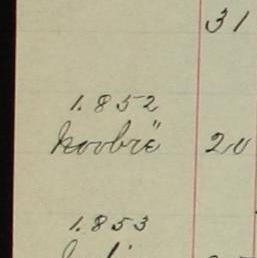 31
1.852
Noobrë 20
1.853